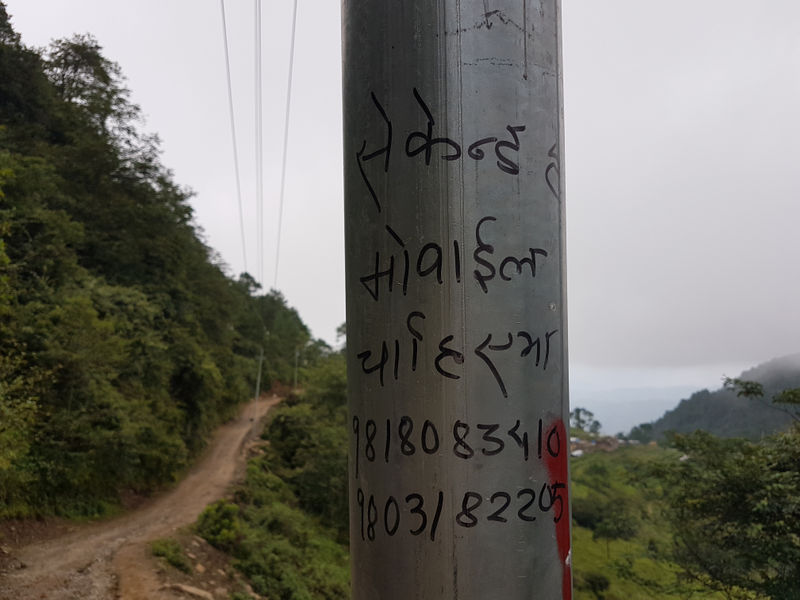 सेकेन्ड ह
मोवाईल
चाहिएमा
9818083510
9803182205